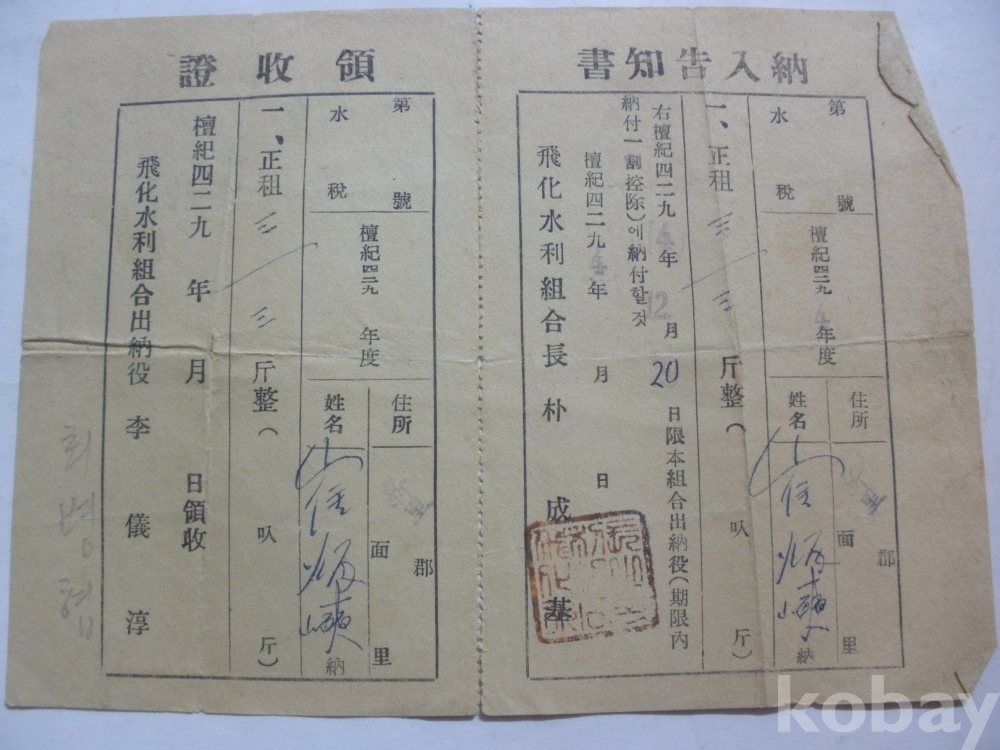 納入告知書
第 號
水稅
檀紀四二九4年度
住所 郡 面 里
姓名 崔炳 納
一、正租 三 三 斤整( 叺 斤)
右檀紀四二九4年12月20日限本組合出納役(期限內
納付一割控除)에納付할것
檀紀四二九4年 月 日
飛化水利組合長 朴成基
領收證
第 號
水稅
檀紀四二九 年度
住所 郡 面 里
姓名 崔炳 納
一、正租 三 三 斤整( 叺 斤)
檀紀四二九 年 月 日領收
飛化水利組合出納役 李儀淳
최병협
kobay